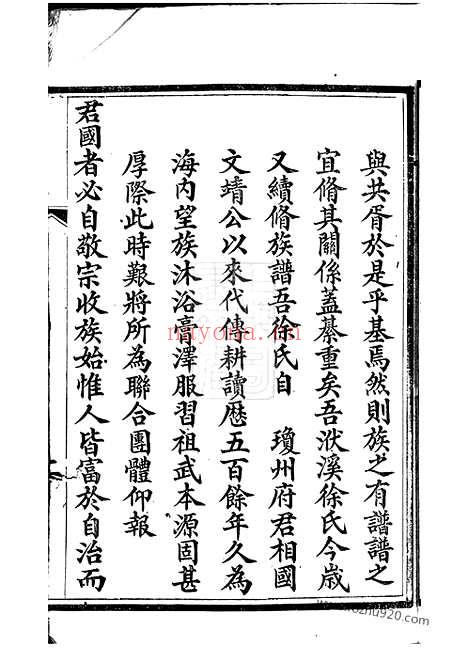 與共胥於是乎基焉然則族之有譜譜之
宜脩其關係蓋綦重矣吾洑溪徐氏今歲
又續脩族譜吾徐氏自　瓊州府君相國
文靖公以來代傳耕讀歷五百餘年久為
海內望族沐浴膏澤服習祖武本源固甚
厚際此時艱將所為聯合團體仰報
君國者必自敬宗收族始惟人皆富於自治而